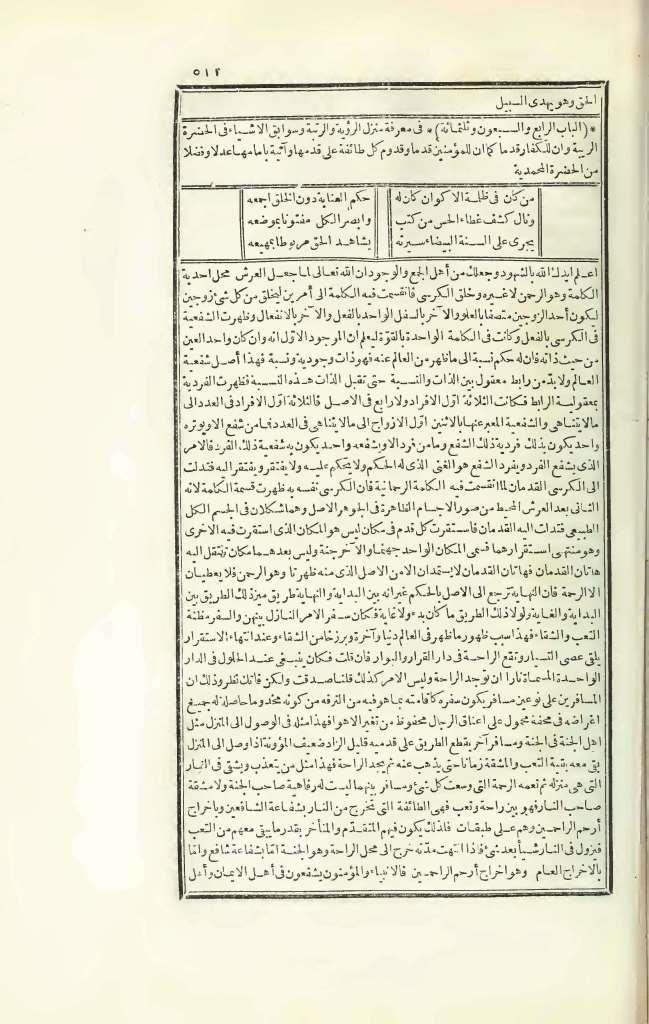 ٥١٢
الحق وهو يهدى السبيل
* (الباب الرابع والسبعون وثلثمائة) * فى معرفة منزل الرؤية والرتبة وسوابق الاشياء فى الحضرة
الربية وان للكفار قدما كما ان للمؤمنين قدما وقدوم كل طائفة على قدمها وآتية بامامها عدلا وفضلا
من الحضرة المحمدية
من كان فى ظلمة الاكوان كان له حكم العناية دون الخلق اجمعه
ونال كشف غطاء الحس من كثب وابصر الكل مفتونا بموضعه
يجرى على السنة البيضاء سيرته يشاهد الحق مربوطا بمهيعه
اعلم ايدك الله بالشهود وجعلك من أهل الجمع والوجود ان الله تعالى لما جعل العرش محل احدية
الكلمة وهو الرحمن لا غيره وخلق الكرسى فانقسمت فيه الكلمة الى أمرين ليخلق من كل شئ زوجين
ليكون أحد الزوجين متصفا بالعلو والآخر بالسفل الواحد بالفعل والآخر بالانفعال وظهرت الشفعية
فى الكرسى بالفعل وكانت فى الكلمة الواحدة بالقوة ليعلم ان الموجود الاول انه وان كان واحد العين
من حيث ذاته فان له حكم نسبة الى ما ظهر من العالم عنه فهو ذات وجودية ونسبة فهذا أصل شفعية
العالم ولا بد من رابط معقول بين الذات والنسبة حتى تقبل الذات هذه النسبة فظهرت الفردية
بمعقولية الرابط فكانت الثلاثة اول الافراد ولا رابع فى الاصل فالثلاثة اول الافراد فى العدد الى
ما لا يتناهى والشفعية المعبر عنها بالاثنين اول الازواج الى ما لا يتناهى فى العدد فما من شفع الا ويوتره
واحد يكون بذلك فردية ذلك الشفع وما من فرد الا ويشفعه واحد يكون به شفعية ذلك الفرد فالامر
الذى يشفع الفرد ويفرد الشفع هو الغنى الذى له الحكم ولا يحكم عليه ولا يفتقر ويفتقر اليه فتدلت
الى الكرسى القدمان لما انقسمت فيه الكلمة الرحمانية فان الكرسى نفسه به ظهرت قسمة الكلمة لانه
الثانى بعد العرش المحيط من صور الاجسام الظاهرة فى الجوهر الاصل وهما شكلان فى الجسم الكل
الطبيعى فتدلت اليه القدمان فاستقرت كل قدم فى مكان ليس هو المكان الذى استقرت فيه الاخرى
وهو منتهى استقرارهما فسمى المكان الواحد جهنم والآخر جنة وليس بعدهما مكان تنتقل اليه
هاتان القدمان فهاتان القدمان لا يستمدان الا من الاصل الذى منه ظهرتا وهو الرحمن فلا يعطيان
الا الرحمة فان النهاية ترجع الى الاصل بالحكم غير انه بين البداية والنهاية طريق ميز ذلك الطريق بين
البداية والغاية ولولا ذلك الطريق ما كان بدء ولا غاية فكان سفر الامر النازل بينهن والسفر مظنة
التعب والشقاء فهذا سبب ظهور ما ظهر فى العالم دنيا وآخرة وبرزخا من الشقاء وعند انتهاء الاستقرار
يلقى عصى التسيار وتقع الراحة فى دار القرار والبوار فان قلت فكان ينبغى عند الحلول فى الدار
الواحدة المسماة نارا ان توجد الراحة وليس الامر كذلك قلنا صدقت ولكن فاتك نظر وذلك ان
المسافرين على نوعين مسافر يكون سفره كاقامته بما هو فيه من الترفه من كونه مخدوما حاصلة له جميع
اغراضه فى محفة محمول على اعناق الرجال محفوظ من تغير الاهواء فهذا مثله فى الوصول الى المنزل مثل
اهل الجنة فى الجنة ومسافر آخر يقطع الطريق على قدميه قليل الزاد ضعيف المؤنة اذا وصل الى المنزل
بقى معه بقية التعب والمشقة زمانا حتى يذهب عنه ثم يجد الراحة فهذا مثل من يتعذب ويشقى فى النار
التى هى منزله ثم تعمه الرحمة التى وسعت كل شئ ومسافر بينهما ليست له رفاهية صاحب الجنة ولا مشقة
صاحب النار فهو بين راحة وتعب فهى الطائفة التى تخرج من النار بشفاعة الشافعين وباخراج
أرحم الراحمين وهم على طبقات فلذلك يكون فيهم المتقدم والمتأخر بقدر ما يبقى معهم من التعب
فيزول فى النار شيأ بعد شئ فاذا انتهت مدته خرج الى محل الراحة وهو الجنة اما بشفاعة شافع واما
بالاخراج العام وهو اخراج أرحم الراحمين فالانبياء والمؤمنون يشفعون فى أهل الايمان وأهل